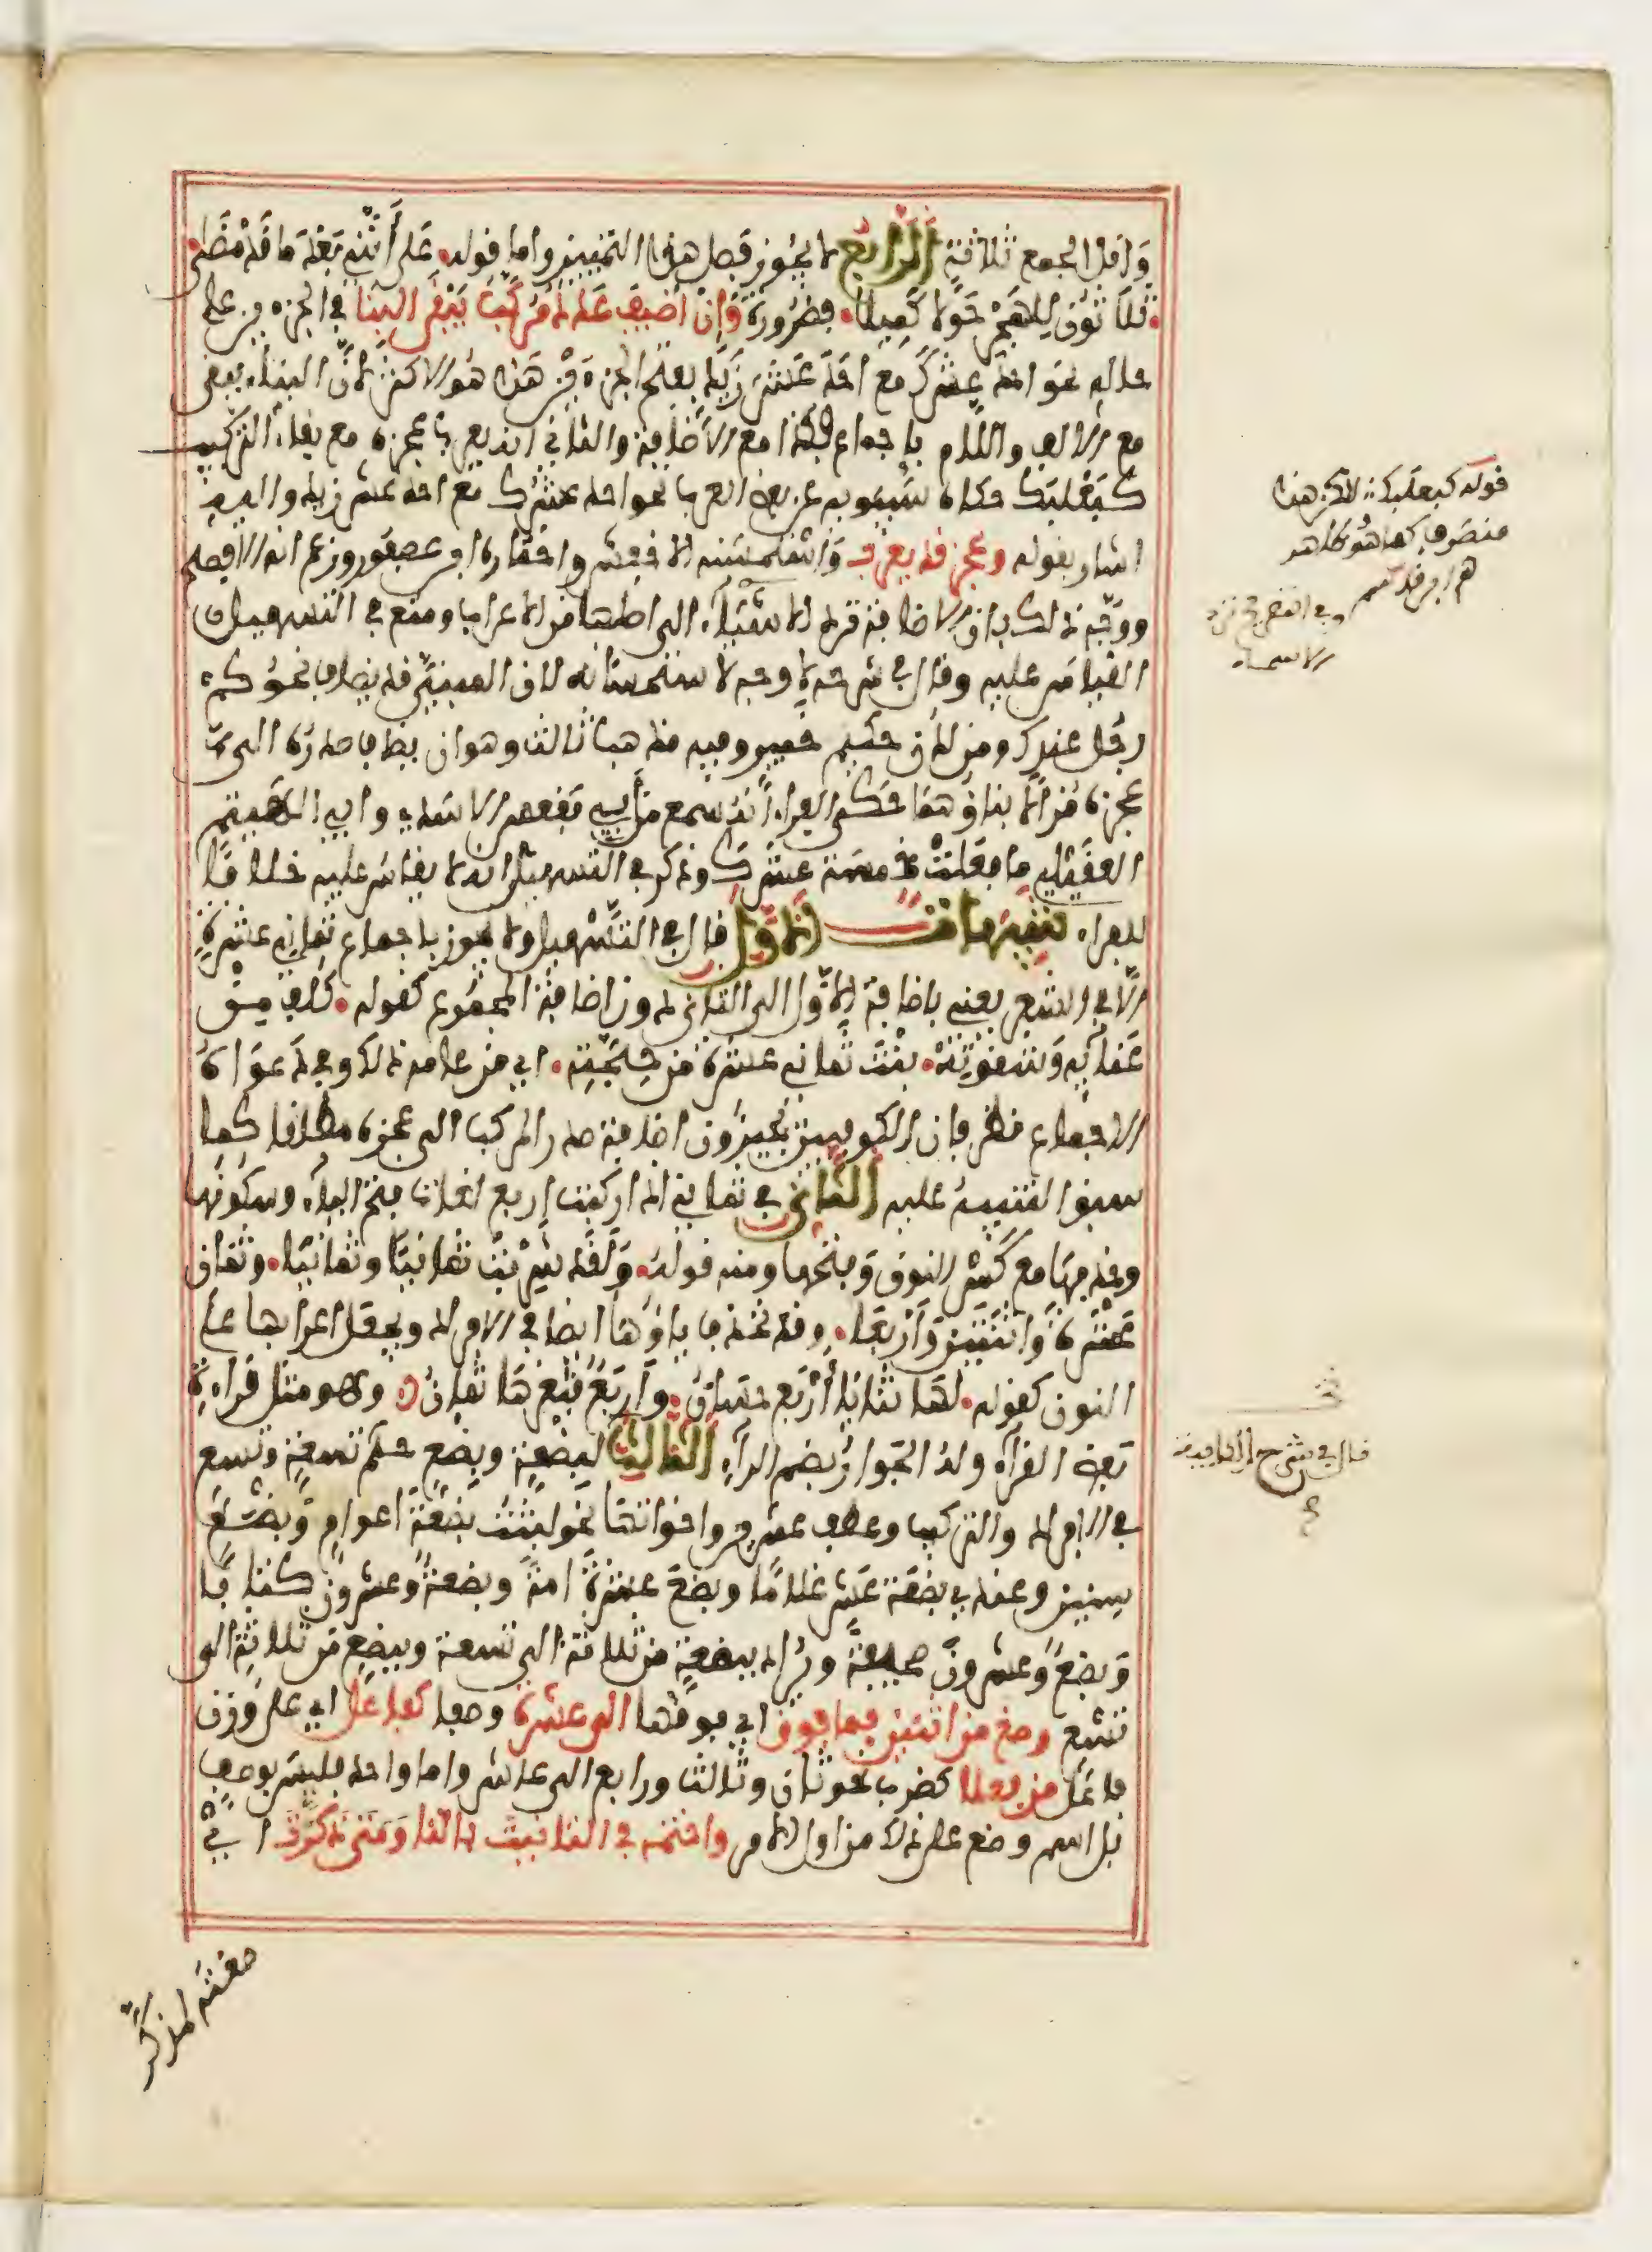 وَاقل الجمع ثلاثة الرابع لا يجوز فصل هذا التمييز واما قوله. على أنني بعد ما قد مضى
. ثلاثون للهجر حولا كميلا. فضرورة وإن اضيف عدد مركب يبقى البنا في الجزءين على
حاله نحو احد عشرك مع احد عشر زيد بفتح الجزءين هذا هو الاكثر لأن البناء يبقى
مع الالف واللام باجماع فكذا مع الاضافة والثاني ان يعرب عجزه مع بقاء التركيب
كبعلبك حكاه سيبويه عن بعض العرب نحو احد عشرك مع احد عشر زيد واليه
اشار بقوله وعجز قد يعرب واستحسنه الاخفش واختاره ابن عصفور وزعم انه الافصح
ووجه ذلك بان الاضافة ترد الاشياء الى اصلها من الاعراب ومنع في التسهيل
القياس عليه وقال في شرحه لا وجه لاستحسانه لان المبني قد يضاف نحو كم
رجل عندك ومن لدن حكيم خبير وفيه مذهب ثالث وهو ان يضاف صدره الى
عجزه مزالا بناؤهما حكى الفراء أنه سمع من أبي فقعس الاسدي وابي الهيثم
العقيلي ما فعلت خمسة عشرك وذكر في التسهيل انه لا يقاس عليه خلافا
للفراء تنبيهات الاول قال في التسهيل ولا يجوز باجماع ثماني عشرة
الا في الشعر يعني باضافة الاول الى الثاني دون اضافة المجموع كقوله. كلف من
عنائه وشقوته. بنت ثماني عشرة من حجته. اي من عامه ذلك وفي دعواه
الاجماع نظر فان الكوفيين يجيزون اضافة صدر المركب الى عجزه مطلقا كما
سبق التنبيه عليه الثاني في ثماني اذا ركبت اربع لغات فتح الياء وسكونها
وحذفها مع كسر النون وفتحها ومنه قوله. ولقد شربت ثمانيا وثمانيا. وثمان
عشرة واثنتين وأربعا. وقد تحذف ياؤها ايضا في الافراد ويجعل اعرابها على
النون كقوله. لها ثنايا أربع حسان. وأربع فثغرها ثمان. وهو مثل قراءة
بعض القراء وله الجوار بضم الراء الثالث لبضعة وبضع حكم تسعة وتسع
في الافراد والتركيب وعطف عشرين واخواتها نحو لبثت بضعة أعوام وبضع
سنين وعندي بضعة عشر غلاما وبضع عشرة امة وبضعة وعشرون كتابا
وبضع وعشرون صحيفة ويراد ببضعة من ثلاثة الى تسعة وببضع من ثلاث الى
تسع وصغ من اثنين فما فوق اي فوقها الى عشرة وصفا كفاعل اي على وزن
فاعل من فعلا كضرب نحو ثان وثالث ورابع الى عاشر واما واحد فليس بوصف
بل اسم وضع على ذلك من اول الامر واختمه في التانيث بالتا ومتى ذكرت اي
قوله كبعلبك لكن هذا
منصرف كما هو ظاهر
الاسماء
قال في شرح الكافية